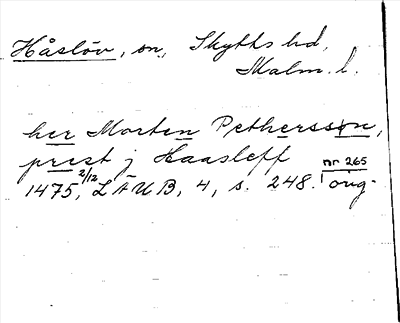 Håslöv, sn, Skytts hd,
Malm. l.
her Morten Pethersson,
prest j Haasleff
1475 2/12, LÄUB, 4, s. 248. nr 265 orig.